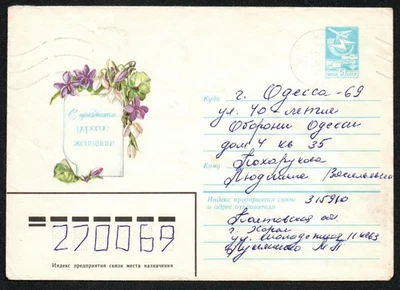 С праздником,
дорогие
женщины
Куда
г. Одесса-69
ул. 40-летие
Оборони Одессы
дом 4 кв 35
Кому
Кохарукова
Людмила Васильевна
Индекс предприятия связи
и адрес отправителя
315910
Полтовская ол.
г. Хорол
ул. Молодежная
270069
Индекс предприятия связи места назначения